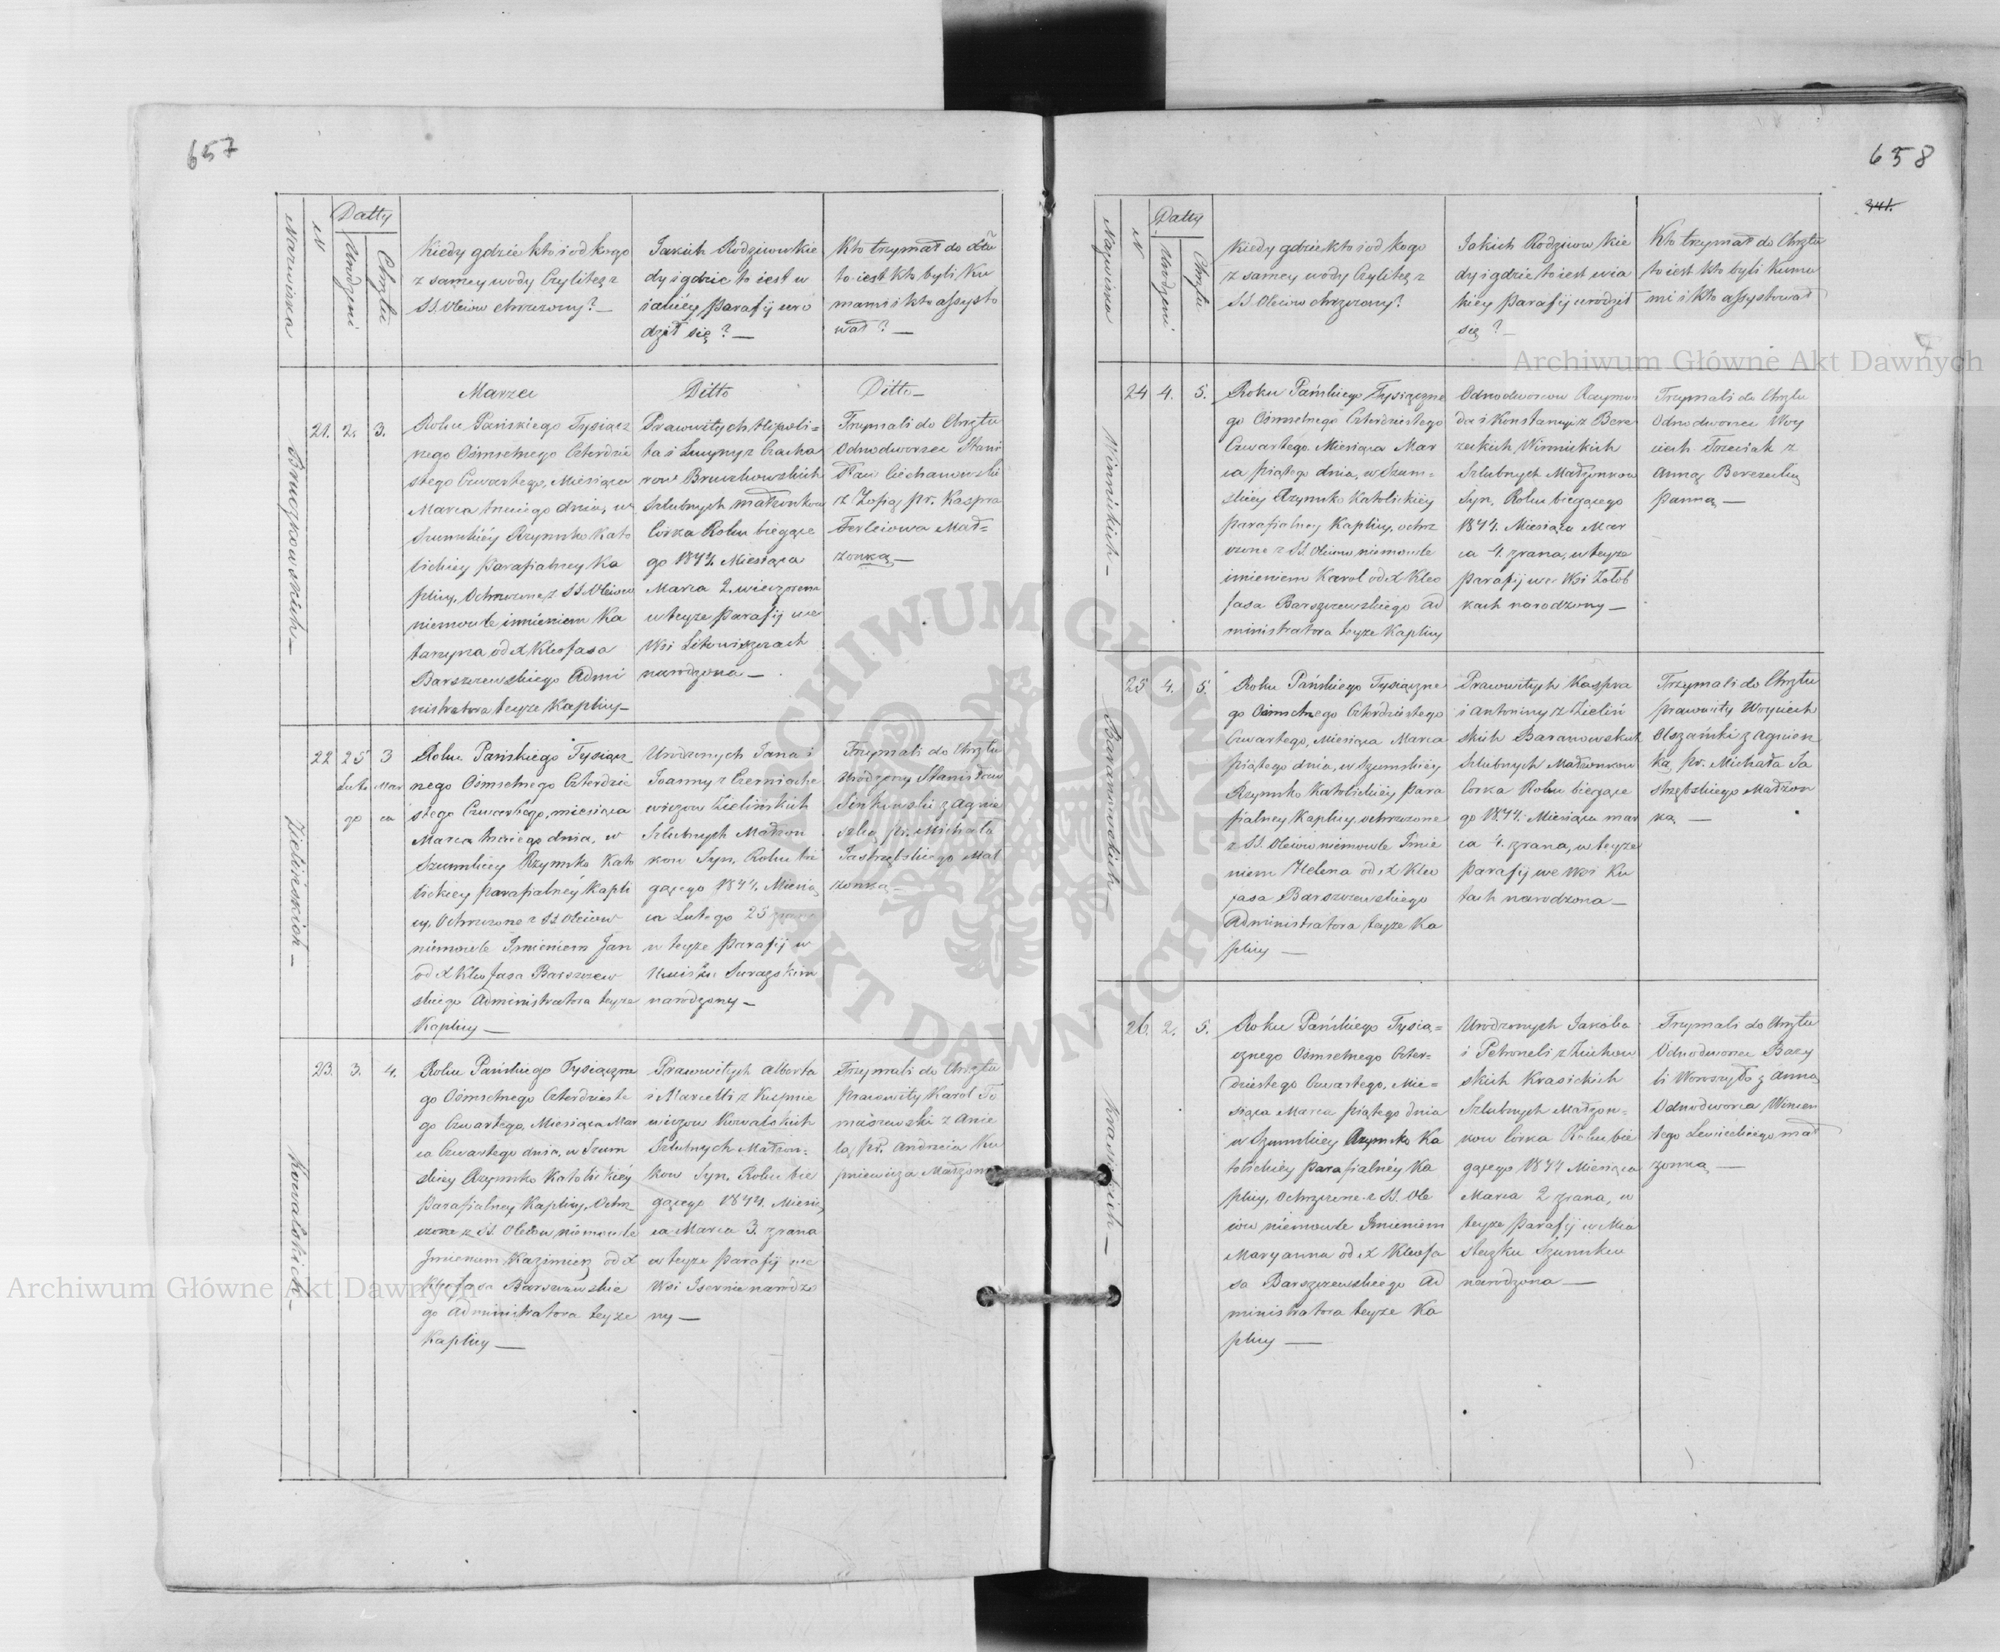 657
Datty
Nazwiska
N
Urodzeni
Chrztu
Kiedy gdzie kto i od kogo
z samey wody czyli też z
SS. Oleiow chrzczony? —
Jakich Rodziców kie
dy i gdzie to iest w
iakiéy Parafij uro
dził się? —
Kto trzymał do
to iest kto byli Ku
mami i kto assysto
wał? —
Marzec
Ditto
Ditto —
21. 2. 3.
Bruczkowskich —
Roku Pańskiego Tysiącz
nego Osmsetnego Czterdzie
stego Czwartego, Miesiąca
Marca trzeciego dnia, w
Szumskiéy Rzymsko Kato
lickiey Parafialney Ka
plicy, Ochrzczone z SS Oleiow
niemowle imieniem Ka
tarzyna, od X Kleofasa
Barszczewskiego Admi
nistratora teyże Kaplicy —
Prawowitych Hipoli-
ta i Lucyny z Czacha
row Bruczkowskich
Szlubnych małżonkow
Corka Roku bieżące
go 1844. Miesiąca
Marca 2. wieczorem
w teyże Parafij we
Wsi Litowiszczach
narodzona —
Trzymali do Chrztu
Odnodworzec Stani
sław Ciechanowski
z Zofią, pr. Kaspra
Ferleiowa Mał-
żonką —
22 25 3
Lute Mar
go ca
Zielińskich —
Roku Pańskiego Tysiącz
nego Osmsetnego Czterdzie
stego Czwartego, miesiąca
Marca trzeciego dnia, w
Szumskiey Rzymsko Kato
lickiey Parafialnéy Kapli
cy, Ochrzczone z SS Oleiow
niemowle Imieniem Jan
od X Kleofasa Barszczew
skiego Administratora teyże
Kaplicy —
Urodzonych Jana i
Joanny z Czerniache
wiczow Zielińskich
Szlubnych Małżon
kow Syn, Roku bie
żącego 1844. Miesią
ca Lutego 25 zrana
w teyże Parafij w
Surażskim
narodzony —
Trzymali do Chrztu
Urodzony Stanisław
Sinkowski z Agnie
szką, pr. Michała
Jastrzębskiego Mał
żonką —
23. 3. 4.
Kowalskich —
Roku Pańskiego Tysiączne
go Osmsetnego Czterdzieste
go Czwartego, Miesiąca Mar
ca Czwartego dnia, w Szum
skiey Rzymsko Katolickiéy
Parafialney Kaplicy, Ochrz
czone z SS. Oleiow niemowle
Imieniem Kazimierz od X
Kleofasa Barszczewskie
go Administratora teyże
Kaplicy —
Prawowitych Alberta
i Marcelli z Kupnie
wiczow Kowalskich
Szlubnych Małżon-
kow Syn, Roku bie
żącego 1844. Miesią
ca Marca 3. zrana
w teyże Parafij we
Wsi Isernie narodzo
ny —
Trzymali do Chrztu
Prawowity Karol To
maszewski z Anie
lą, pr. Andrzeia Ku
pniewicza Małżonką
658
341.
Datty
Nazwiska
N
Urodzeni
Chrztu
Kiedy gdzie kto i od kogo
z samey wody Czyli też z
SS. Oleiow chrzczony?
Jakich Rodziców Kie
dy i gdzie to iest w ia
kiey Parafij urodził
się? —
Kto trzymał do Chrztu
to iest kto byli Kuma
mi i kto assystował
24 4. 5.
Winnickich —
Roku Pańskiego Tysiączne
go Osmsetnego Czterdziestego
Czwartego. Miesiąca Mar
ca piątego dnia, w Szum-
skiey Rzymsko Katolickiéy
parafialney Kaplicy, ochrz
czone z SS. Oleiow niemowle
imieniem Karol od X Kleo
fasa Barszczewskiego Ad
ministratora teyże Kaplicy
Odnodworcow Rajmun
da i Konstancyi z Bere
zeckich Winnickich
Szlubnych Małżonkow
Syn, Roku bieżącego
1844. Miesiąca Mar
ca 4. zrana, w teyże
Parafij we Wsi Żołob
kach narodzony —
Trzymali do Chrztu
Odnodworzec Woy
ciech Trzeciak z
Anną Berezecką
Panną —
25 4. 5.
Baranowskich —
Roku Pańskiego Tysiączne
go Osmsetnego Czterdziestego
Czwartego, Miesiąca Marca
piątego dnia, w Szumskiéy
Rzymsko Katolickiéy Para
fialney Kaplicy, ochrzczone
z SS. Oleiow niemowle Imie
niem Helena od X Kleo
fasa Barszczewskiego
Administratora teyże Ka
plicy —
Prawowitych Kaspra
i Antoniny z Zieliń
skich Baranowskich
Szlubnych Małżonkow
Corka Roku bieżące
go 1844. Miesiąca mar
ca 4. zrana, w teyże
Parafij we Wsi Ku
tach narodzona —
Trzymali do Chrztu
Prawowity Woyciech
Olszański z Agniesz
ką, pr. Michała Ja
strzębskiego Małżon
ką —
26. 2. 5.
Krasickich —
Roku Pańskiego Tysią-
cznego Osmsetnego Czter-
dziestego Czwartego, Mie-
siąca Marca piątego dnia
w Szumskiey Rzymsko Ka
tolickiéy Parafialnéy Ka
plicy, ochrzczone z SS. Ole
iow niemowle Imieniem
Maryanna od X Kleofa
sa Barszczewskiego Ad
ministratora teyże Ka
plicy —
Urodzonych Jakóba
i Petroneli z Zuchow
skich Krasickich
Szlubnych Małżon-
kow Corka Roku bie
żącego 1844 Miesiąca
Marca 2 zrana, w
teyże Parafij w Mia
steczku Szumsku
narodzona —
Trzymali do Chrztu
Odnodworzec Bazy
li Woroszyło z Anną
Odnodworca Wincen
tego Lewickiego mał
żonką —
Archiwum Główne Akt Dawnych
Archiwum Główne Akt Dawnych
ARCHIWUM GŁÓWNE
AKT DAWNYCH